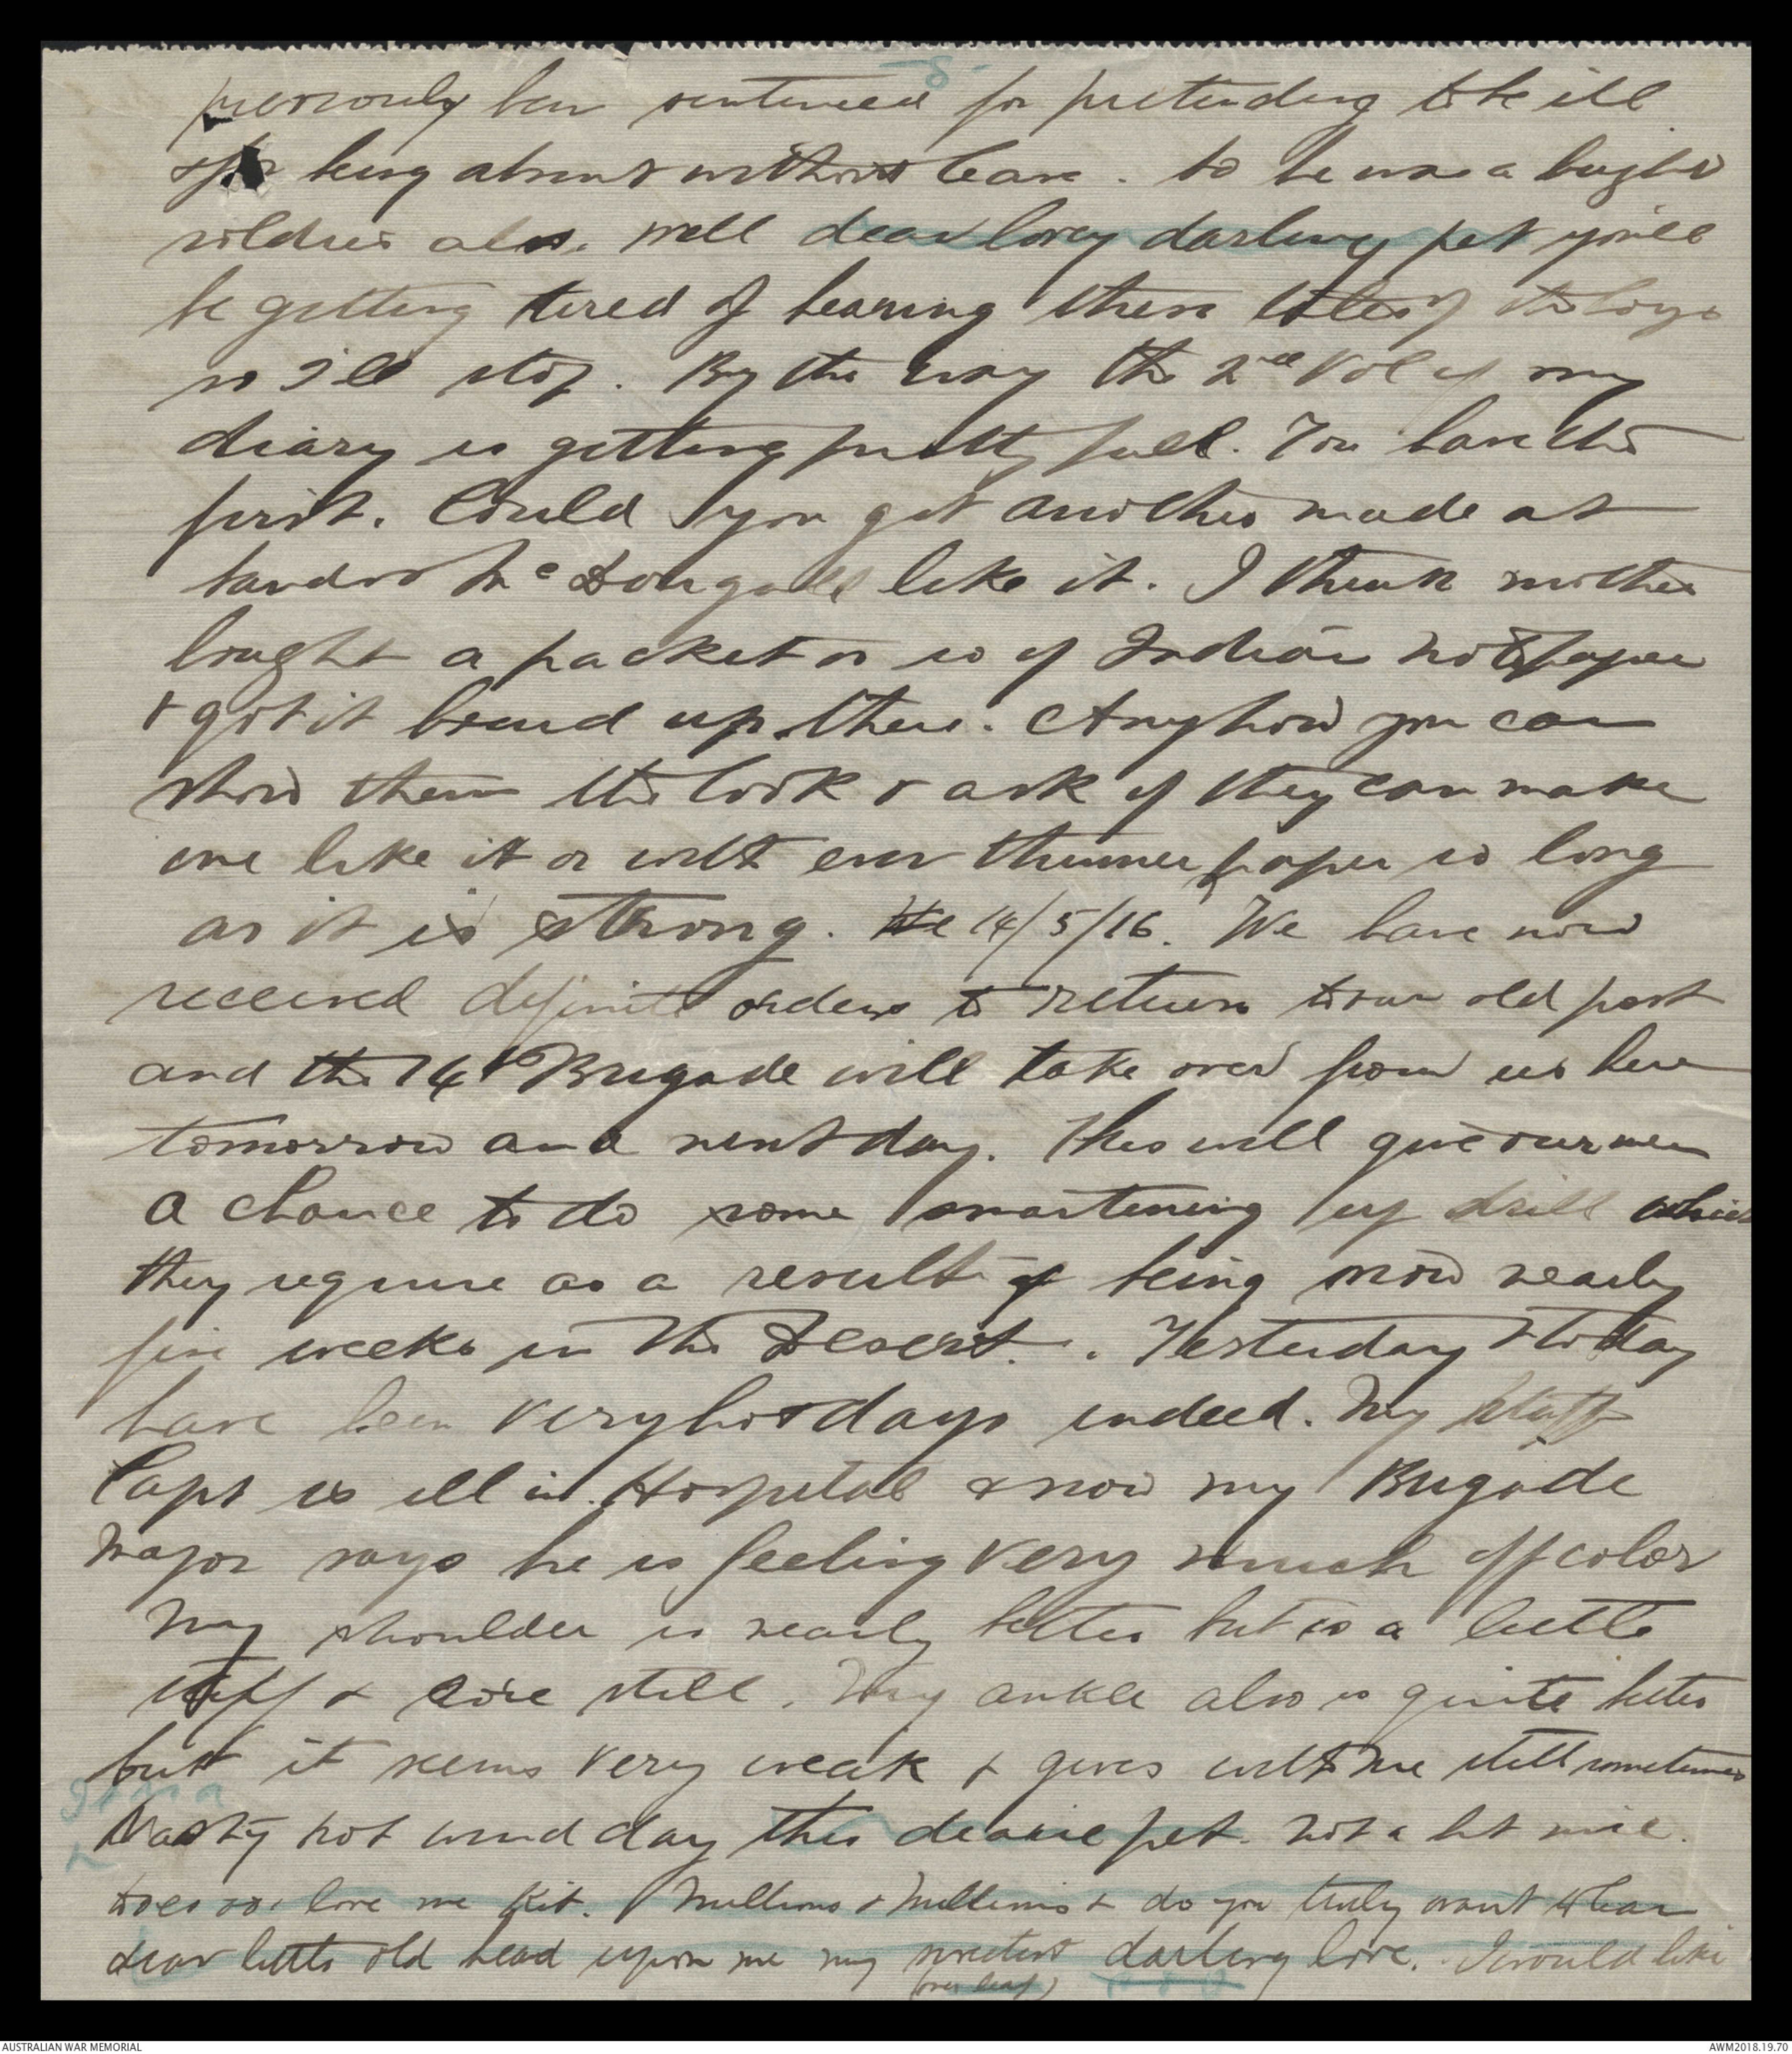 -8-
previously been sentenced for pretending to be ill
& for being absent without leave. So he was a bright
soldier also. Well dear lovey darling pet you'll
be getting tired of hearing these tales of the boys
so I'll stop. By the way the 2nd Vol of my
diary is getting pretty full. You have the
first. Could you get another made at
Sands & McDougalls like it. I think mother
bought a packet or so of Indian notepaper
& got it bound up there. Anyhow you can
show them the book & ask if they can make
one like it or with even thinner paper so long
as it is strong. We 14/5/16. We have now
received definite orders to return to our old post
and the 14th Brigade will take over from us here
tomorrow and next day. This will give our men
a chance to do some smartening up drill which
they require as a result of being now nearly
five weeks in the Desert. Yesterday & today
have been very hot days indeed. My Staff
Capt is ill in Hospital & now my Brigade
Major says he is feeling very much off color
My shoulder is nearly better but is a little
stiff & sore still. My ankle also is quite better
but it seems very weak & gives with me still sometimes
Nasty hot wind day this dearie pet. Not a bit nice.
Does oo love me Kit. Millions & Millions & do you truly want to lean
dear little old head upon me my sweetest darling love. I would like
(over leaf)
AUSTRALIAN WAR MEMORIAL
AWM2018.19.70